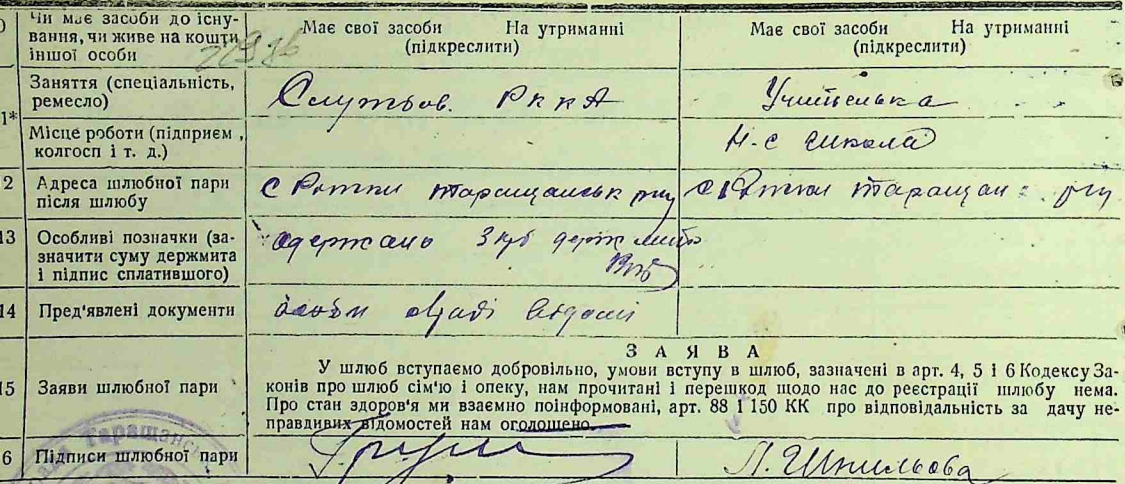 Чи має засоби до існу-
вання, чи живе на кошти
іншої особи
Має свої засоби На утриманні
(підкреслити)
Має свої засоби На утриманні
(підкреслити)
1*
Заняття (спеціальність,
ремесло)
Службов. РККА
Учителька
Місце роботи (підприєм,
колгосп і т. д.)
Н-С школа
2
Адреса шлюбної пари
після шлюбу
с таращанськ рну
с таращан рну
13
Особливі позначки (за-
значити суму держмита
і підпис сплатившого)
одержано 3 крб держ мито
14
Пред'явлені документи
особи сільраді відомі
15
Заяви шлюбної пари
ЗАЯВА
У шлюб вступаємо добровільно, умови вступу в шлюб, зазначені в арт. 4, 5 і 6 Кодексу За-
конів про шлюб сім'ю і опеку, нам прочитані і перешкод щодо нас до реєстрації шлюбу нема.
Про стан здоров'я ми взаємно поінформовані, арт. 88 і 150 КК про відповідальність за дачу не-
правдивих відомостей нам оголошено.
6
Підписи шлюбної пари
Л. Шпильова